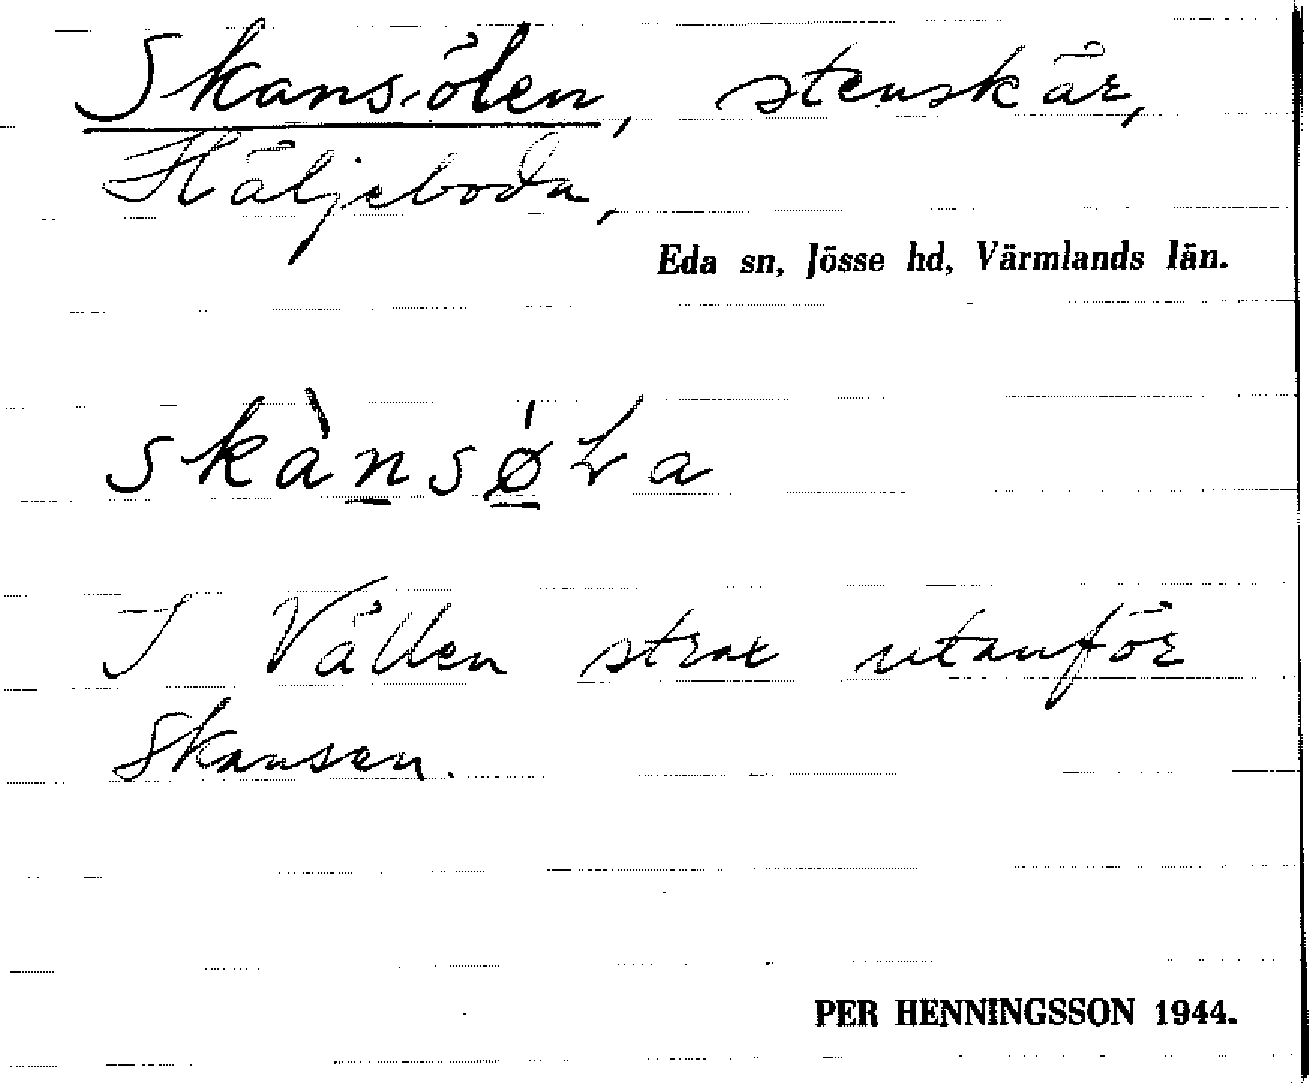 Skansölen, stenskär,
Häljeboda,
Eda sn, Jösse hd, Värmlands län.
skànsǿ̲La
I Vällen strax utanför
Skansen.
PER HENNINGSSON 1944.